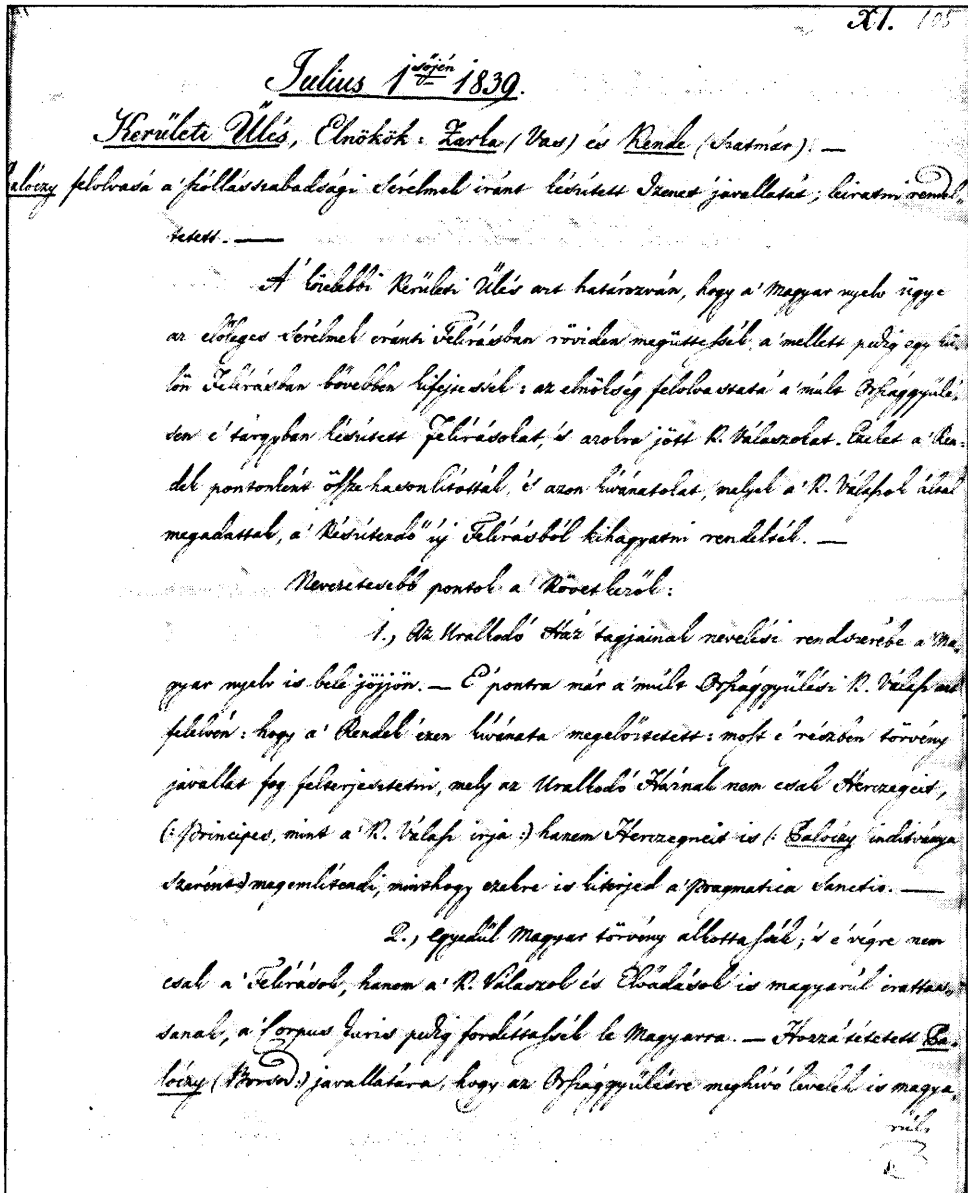 XI. 105
Julius 1sőjén 1839.
Kerületi Ülés, Elnökök: Zarka (Vas) és Kende (Szatmár). —
Palóczy felolvasá a' szóllásszabadsági Sérelmek iránt készített Izenet javallatát; leiratni rendel„
tetett. —
A' közelebbi Kerületi Ülés azt határozván, hogy a' Magyar nyelv ügye
az előleges Sérelmek eránti Felirásban röviden megüttessék, a' mellett pedig egy kü„
lön Felirásban bővebben kifejtessék: az elnökség felolvastatá a' múlt Országgyűlé„
sen e' tárgyban készített Felirásokat, és azokra jött K. Válaszokat. Ezeket a' Ren„
dek pontonként össze hasonlították, és azon kivánatokat, melyek a' K. Válaszok által
megadattak, a' készítendő új Felirásból kihagyatni rendelték. —
Nevezetesebb pontok a' következők:
1., Az Uralkodó Ház' tagjainak nevelési rendszerébe a' Ma„
gyar nyelv is belé jöjjön. — E' pontra már a' múlt Országgyűlési K. Válasz azt
felelvén: hogy a' Rendek ezen kivánata megelőztetett: most e' részben törvény
javallat fog felterjesztetni, mely az Uralkodó Háznak nem csak Herczegeit,
(: Principes, mint a' K. Válasz irja :) hanem Herczegneit is (: Palóczy inditványa
szerént :) megemlítendi, minthogy ezekre is kiterjed a' pragmatica Sanctio. —
2., Egyedűl Magyar törvény alkottassék; 's e' végre nem
csak a' Felirások, hanem a' K. Válaszok és Előadások is magyarúl irattas„
sanak, a' Corpus Juris pedig fordíttassék le Magyarra. — Hozzá tétetett Pa„
lóczy (Borsod :) javallatára, hogy az Országgyűlésre meghivó levelek is magya„
rúl